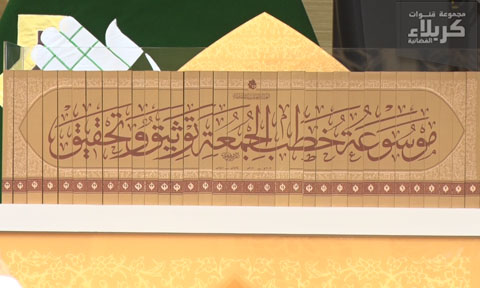 مجموعة قنوات
كربلاء
الفضائية
موسوعة خطب الجمعة توثيق وتحقيق